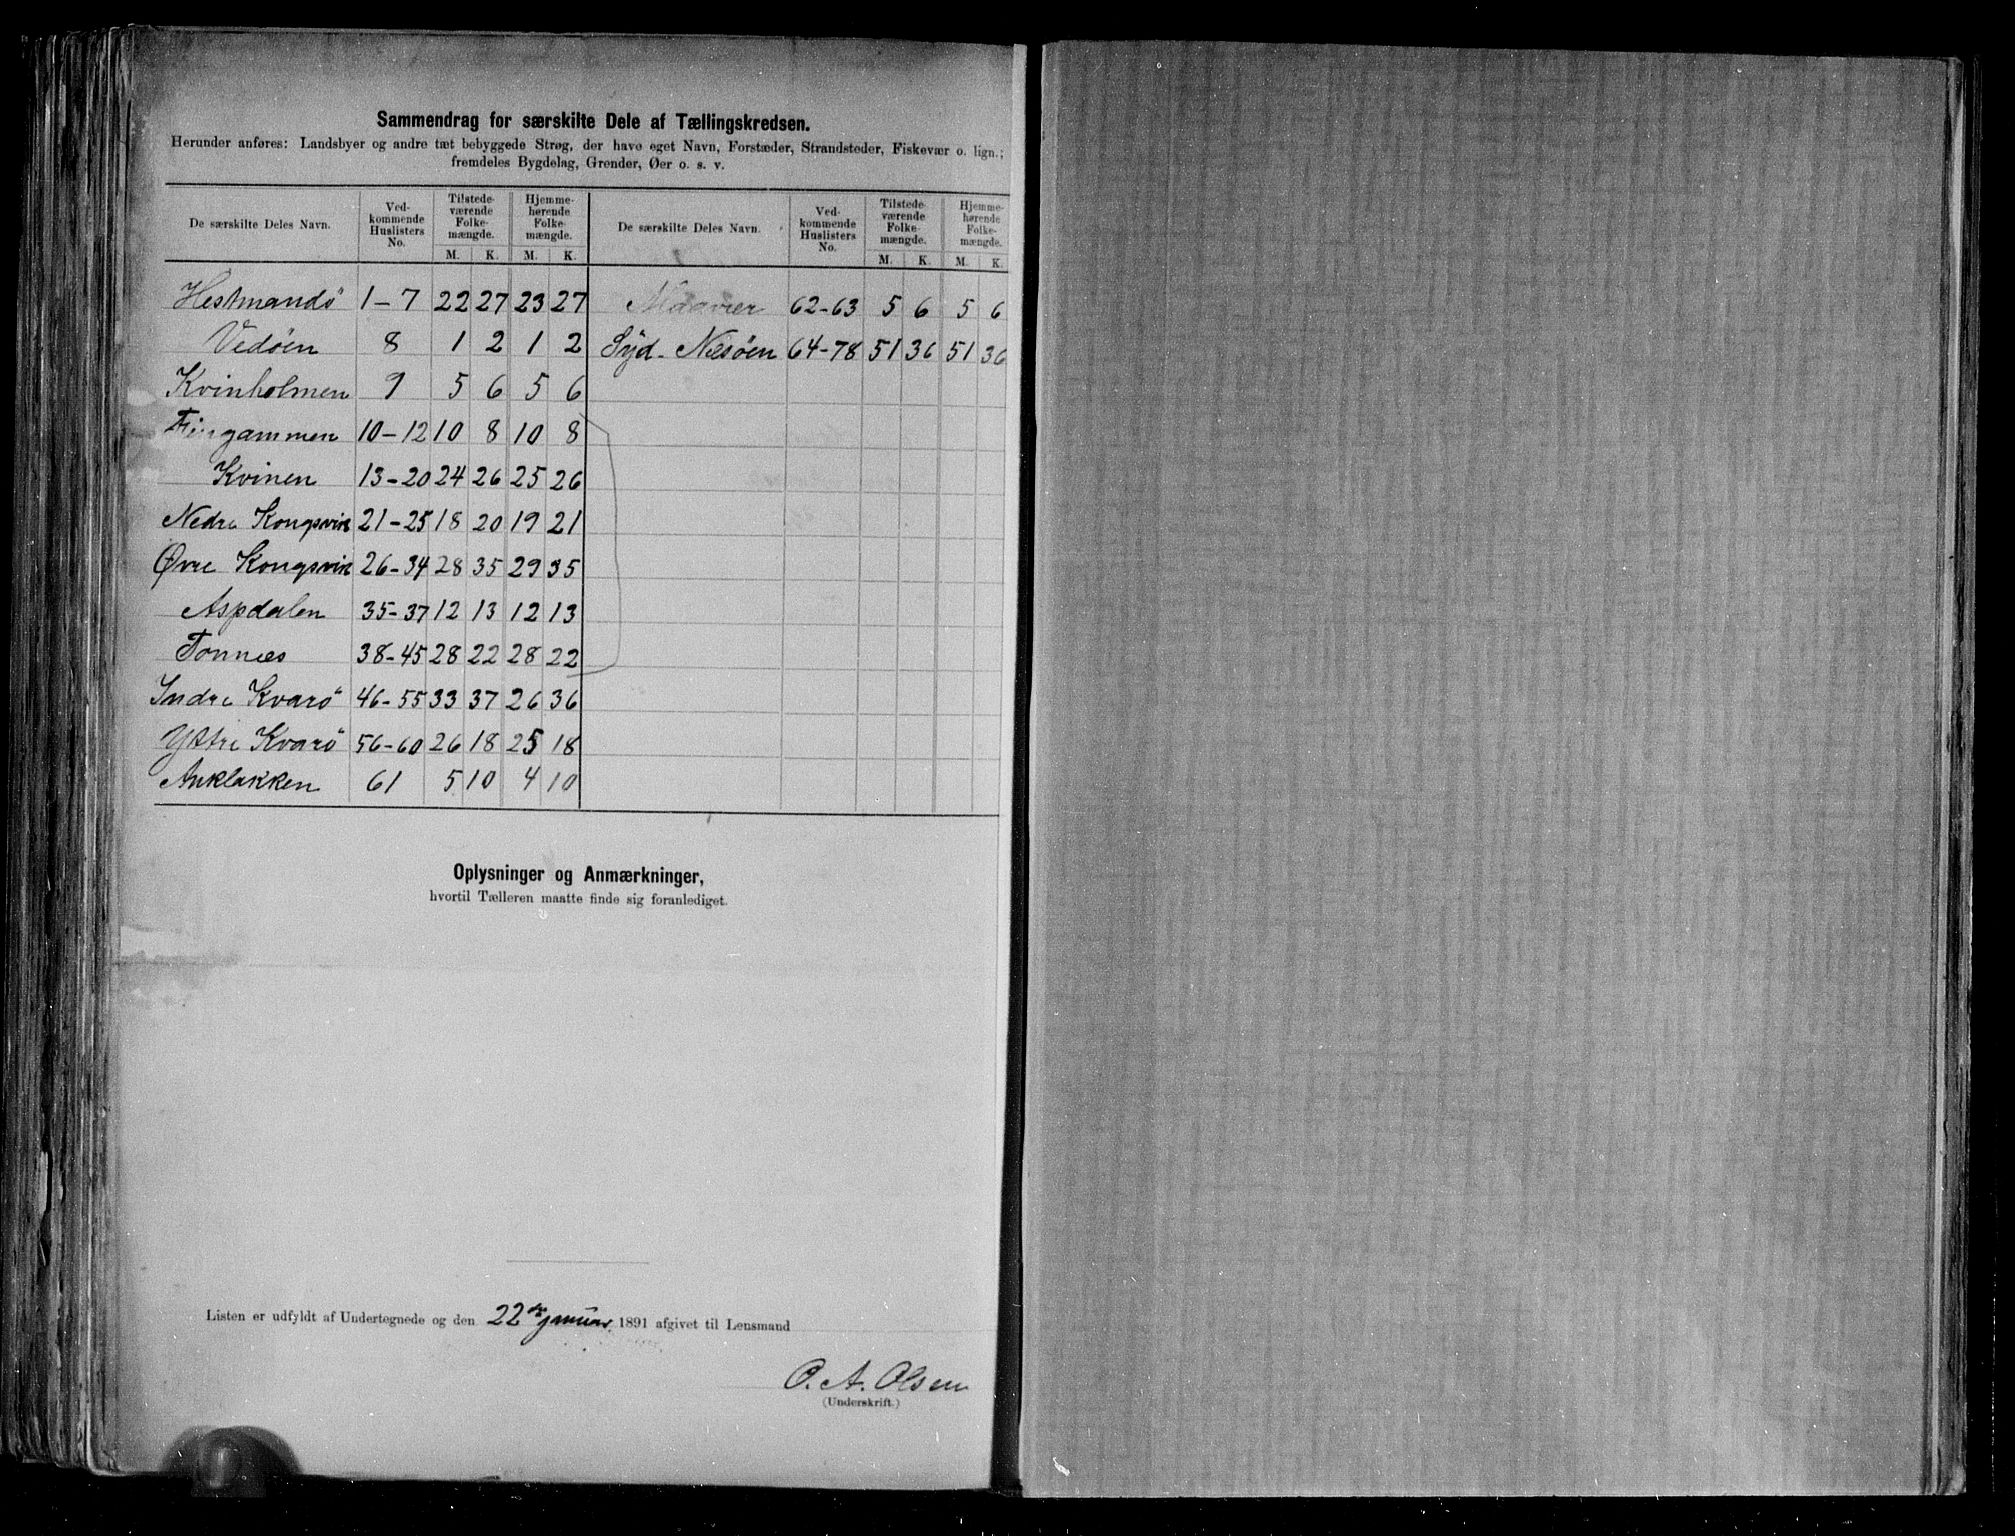 Sammendrag for særskilte Dele af Tællingskredsen.
Herunder anføres: Landsbyer og andre tæt bebyggede Strøg, der have eget Navn, Forstæder, Strandsteder, Fiskevær o. lign.;
fremdeles Bygdelag, Grender, Øer o. s. v.
De særskilte Deles Navn. Ved-kommende Huslisters No. Tilstede-værende Folke-mængde. Hjemme-hørende Folke-mængde. De særskilte Deles Navn. Ved-kommende Huslisters No. Tilstede-værende Folke-mængde. Hjemme-hørende Folke-mængde.
M. K. M. K. M. K. M. K.
Hestmandö 1-7 22 27 23 27 62-63 5 6 5 6
Vedøen 8 1 2 1 2 Syd-Næsøen 64-78 51 36 51 36
Kvinholmen 9 5 6 5 6
Fingammen 10-12 10 8 10 8
Kvinen 13-20 24 26 25 26
Nedre Kongsvik 21-25 18 20 19 21
Øvre Kongsvik 26-34 28 35 29 35
Aspdalen 35-37 12 13 12 13
Tonnæs 38-45 28 22 28 22
Indre Kvarö 46-55 33 37 26 36
Ystre Kvarö 56-60 26 18 25 18
Anklakken 61 5 10 4 10
Oplysninger og Anmærkninger,
hvortil Tælleren maatte finde sig foranlediget.
Listen er udfyldt af Undertegnede og den 22de januar 1891 afgivet til Lensmand
O. A. Olsen
(Underskrift.)